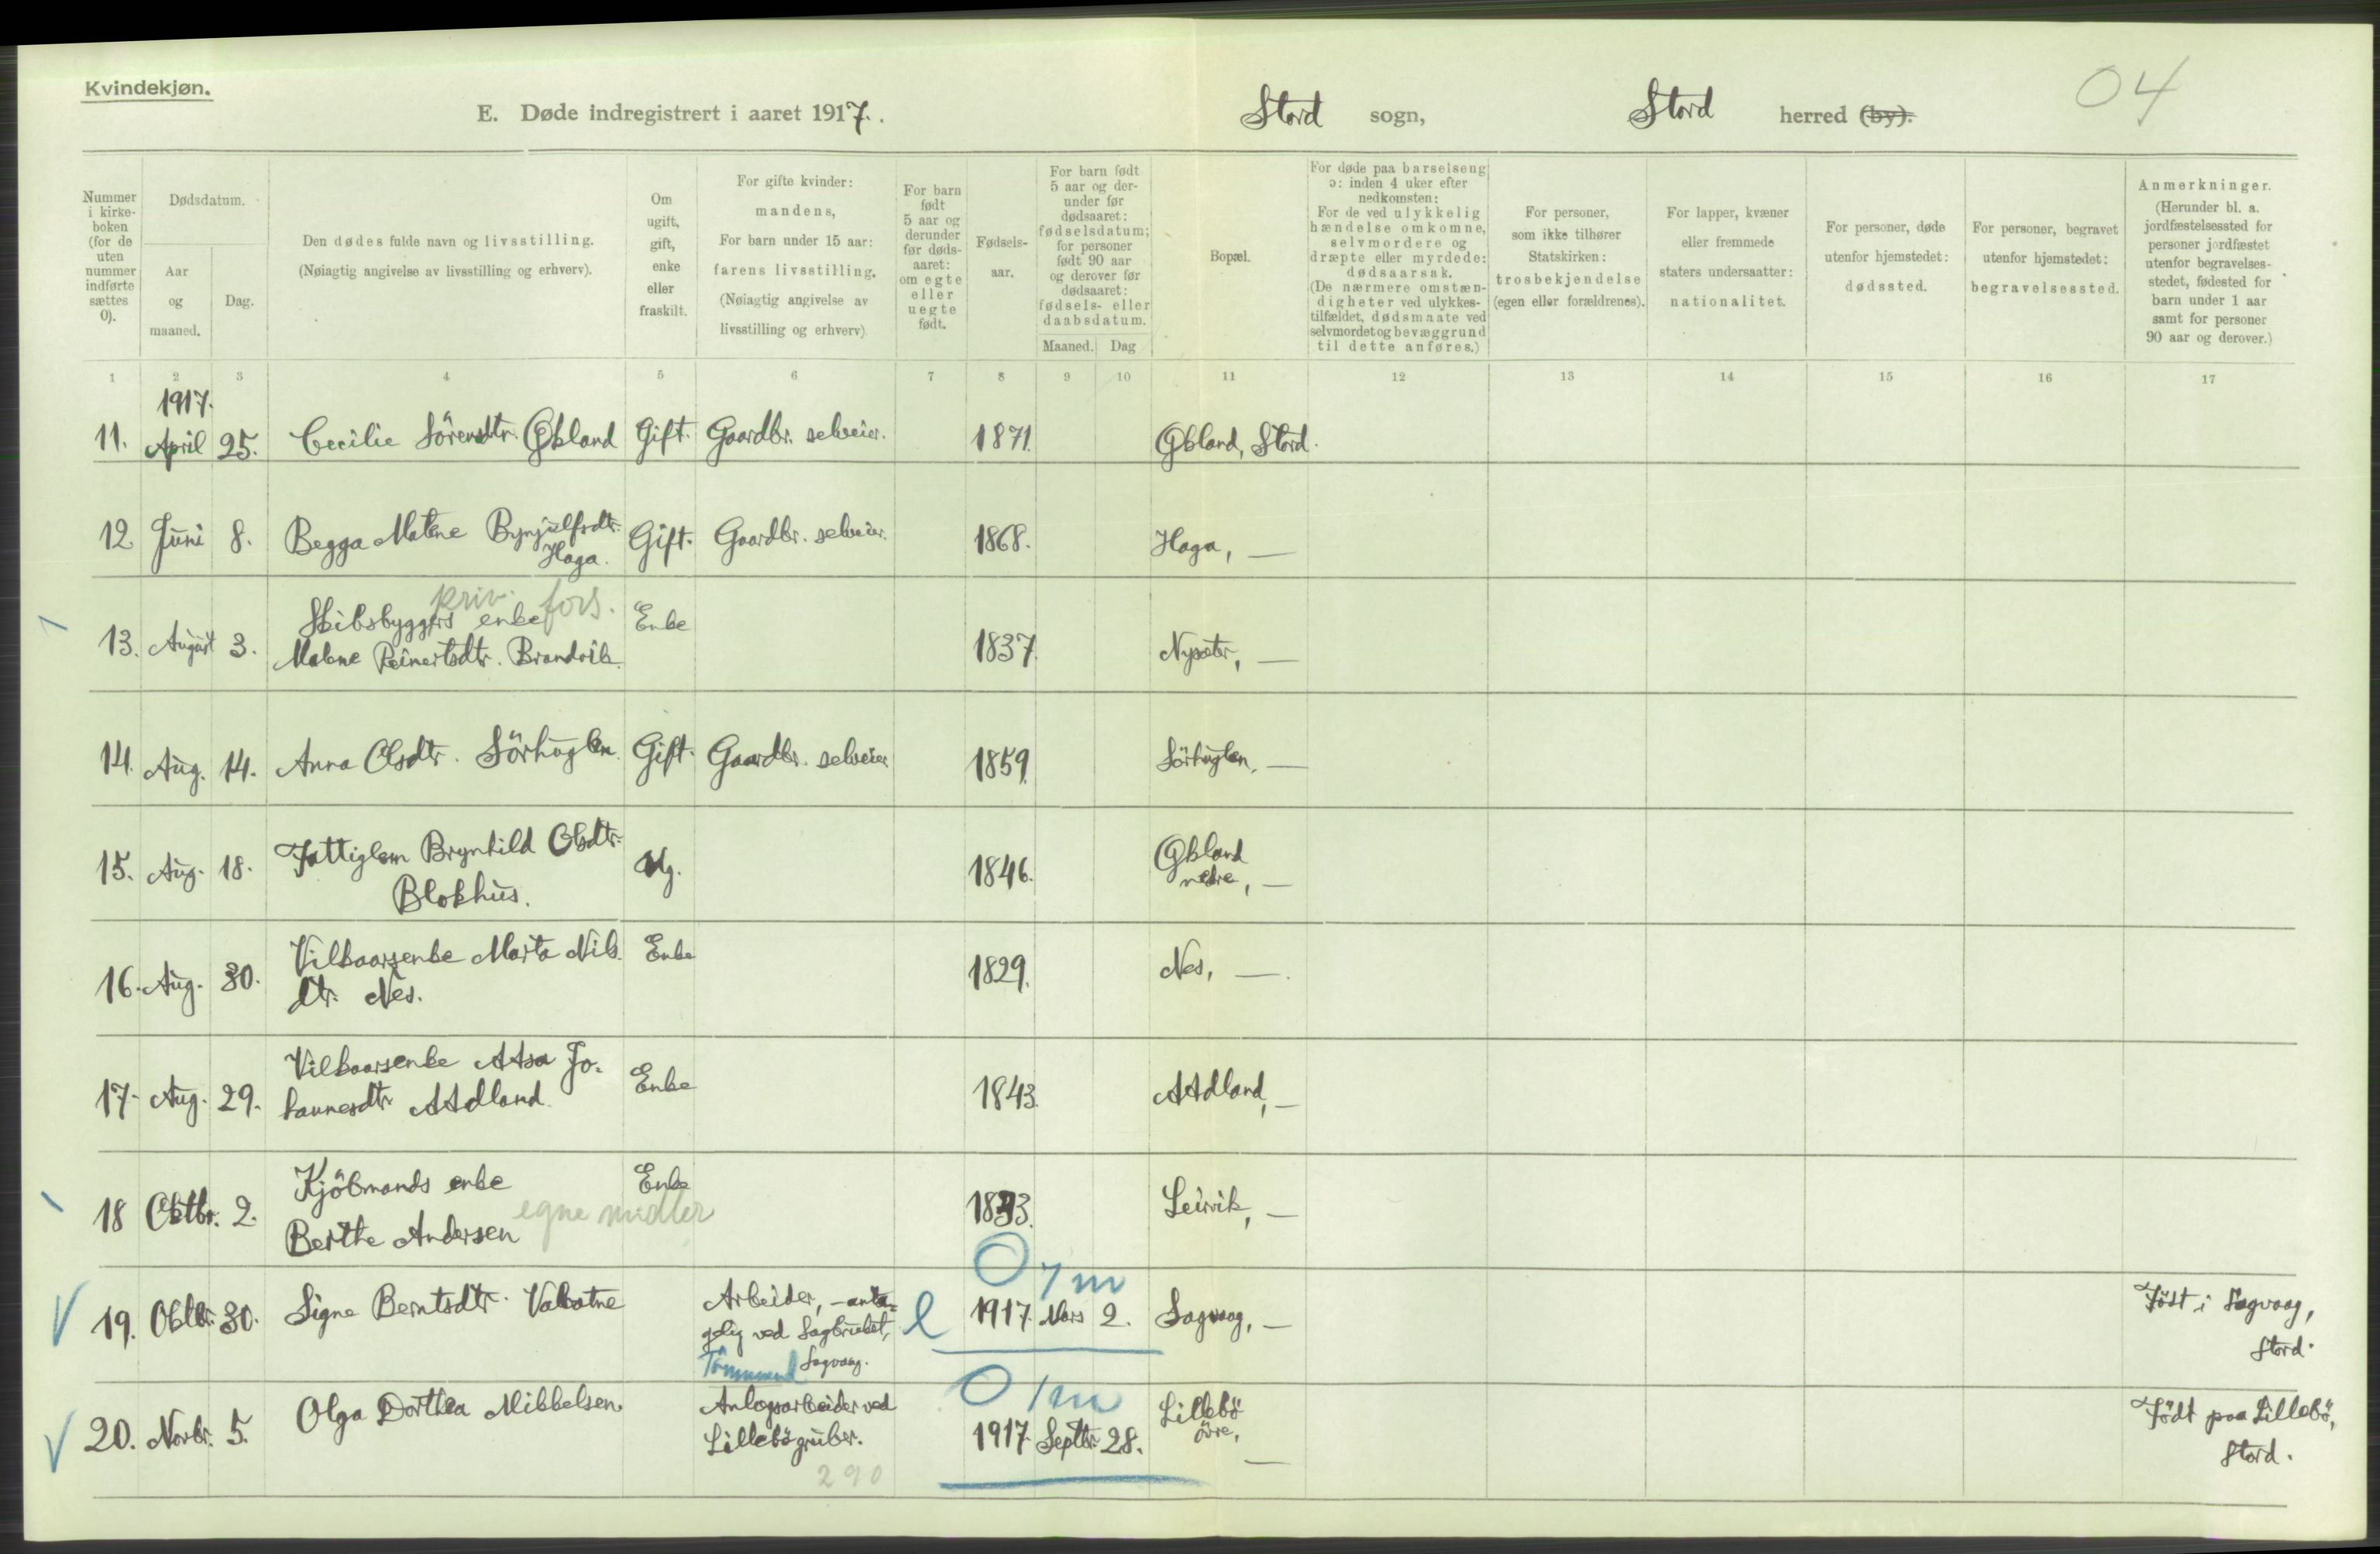 Kvindekjøn.
E. Døde indregistrert i aaret 1917.
Stord sogn,
Stord herred (by).
04
Nummer i kirke-boken (for de uten nummer indførte sættes 0).
Dødsdatum.
Aar og maaned.
Dag.
Den dødes fulde navn og livsstilling.
(Nøiagtig angivelse av livsstilling og erhverv).
Om ugift, gift, enke eller fraskilt.
For gifte kvinder: mandens,
For barn under 15 aar: farens livsstilling.
(Nøiagtig angivelse av livsstilling og erhverv)
For barn født 5 aar og derunder før døds-aaret: om egte eller uegte født.
Fødsels-aar.
For barn født 5 aar og der-under før dødsaaret: fødselsdatum; for personer født 90 aar og derover før dødsaaret: fødsels- eller daabsdatum.
Maaned. Dag
Bopæl.
For døde paa barselseng ɔ: inden 4 uker efter nedkomsten:
For de ved ulykkelig hændelse omkomne, selvmordere og dræpte eller myrdede: dødsaarsak.
(De nærmere omstæn-digheter ved ulykkes-tilfældet, dødsmaate ved selvmordet og bevæggrund til dette anføres.)
For personer, som ikke tilhører Statskirken: trosbekjendelse (egen eller forældrenes).
For lapper, kvæner eller fremmede staters undersaatter: nationalitet.
For personer, døde utenfor hjemstedet: dødssted.
For personer, begravet utenfor hjemstedet: begravelsessted.
Anmerkninger.
(Herunder bl. a. jordfæstelsessted for personer jordfæstet utenfor begravelses-stedet, fødested for barn under 1 aar samt for personer 90 aar og derover.)
1 2 3 4 5 6 7 8 9 10 11 12 13 14 15 16 17
1917.
11. April 25. Cecilie Sörensdtr. Økland Gift. Gaardbr. selveier. 1871. Økland, Stord.
12. Juni 8. Begga Malene Brynjulfsdtr. Haga. Gift. Gaardbr. selveier. 1868. Haga, —
priv. fors.
13. August 3. Skibsbyggers enke Malene Reinertsdtr. Brandvik. Enke 1837. Nysæter, —
14. Aug. 14. Anna Olsdtr. Sörhuglen. Gift. Gaardbr. selveier 1859. Sörhuglen, —
15. Aug. 18. Fattiglem Brynhild Olsdtr. Blokhus. Ug. 1846. Økland nedre, —
16. Aug. 30. Vilkaarsenke Marta Nils dtr. Nes. Enke 1829. Nes, —.
17. Aug. 29. Vilkaarsenke Aasa Jo-hannesdtr. Aadland. Enke 1843. Aadland, —
18 Oktbr. 2. Kjöbmands enke Berthe Andersen Enke 1833. Leirvik, —
egne midler
0 7 m
19. Oktbr. 30. Signe Berntsdtr. Valvatne Arbeider, - anta-gelig ved Sagbruket, Sagvaag. e 1917. Mars 2. Sagvaag, — Födt i Sagvaag, Stord.
Tömmermand
0 1 m
20. Novbr. 5. Olga Dorthea Mikkelsen. Anlegsarbeider ved Lillebögruber. 1917. Septbr. 28. Lillebö övre, — Födt paa Lillebö, Stord.
290